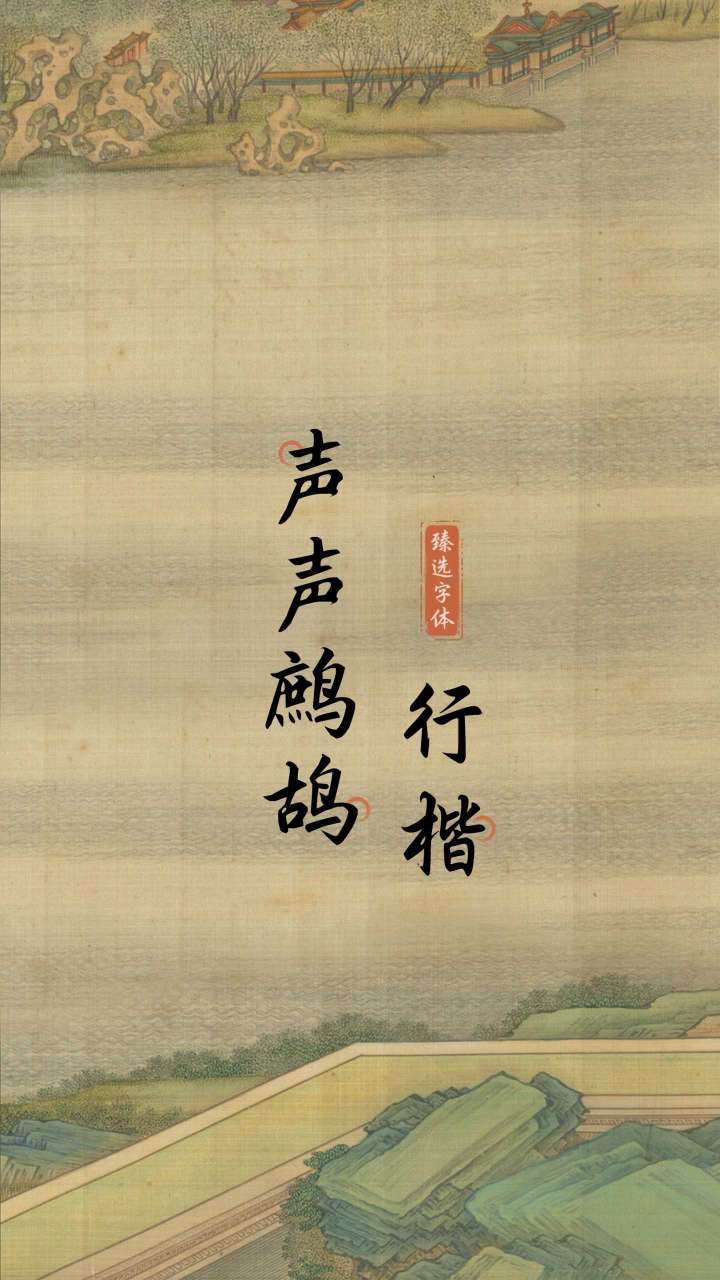 臻选字体
行楷
声声鹧鸪